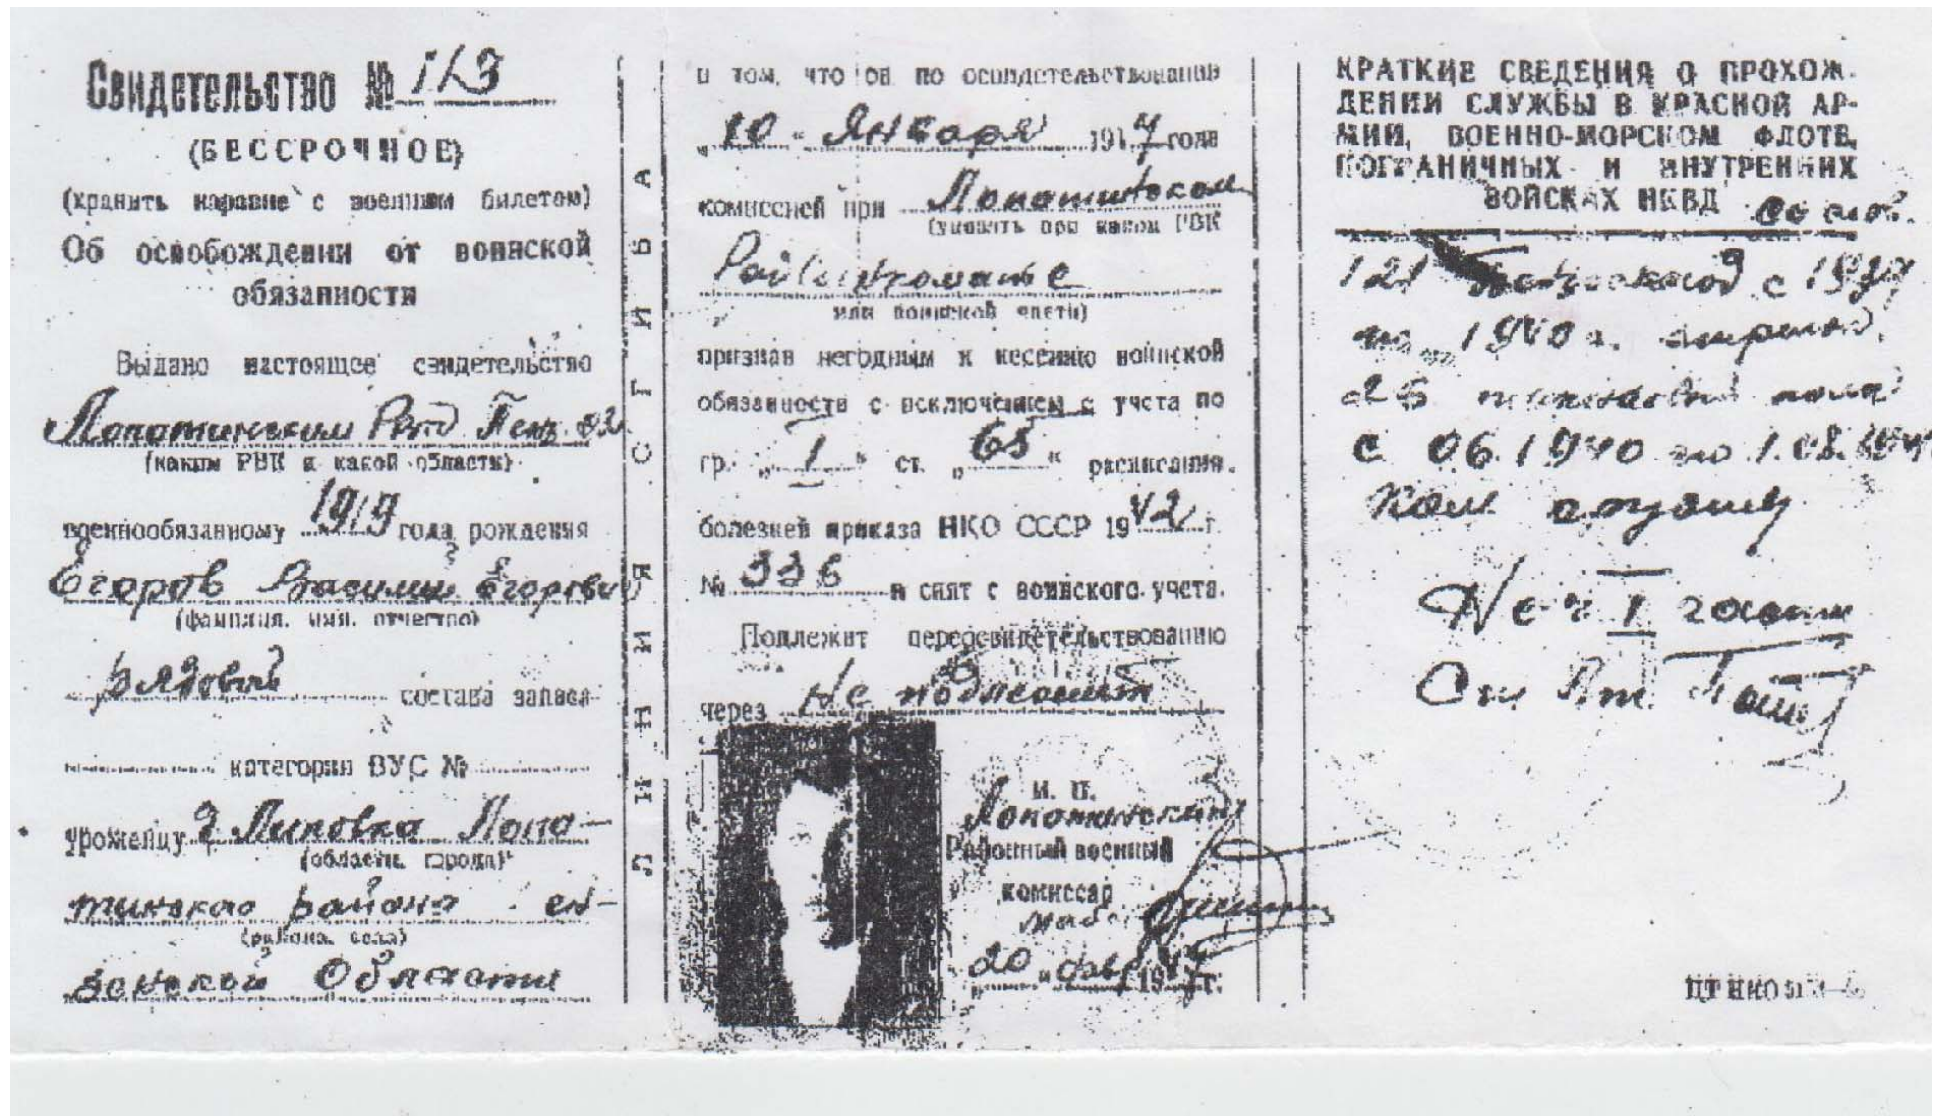 Свидетельство № 113
(БЕССРОЧНОЕ)
(хранить наравне с военным билетом)
Об освобождении от воинской
обязанности
Выдано настоящее свидетельство
Лопатинским
(каким РВК и какой области)
военнообязанному 1919 года рождения
Егоров Василий Егорович
(фамилия, имя, отчество)
рядовой состава запаса
категории ВУС №
урожейцу д Липовка Лопа-
(области, города)
тинского района
(района, села)
зенской Области
ЛИНИЯ СГИБА
в том, что он по освидетельствовании
„10" Января 1947 года
комиссией при Лопатинском
(указать при каком РВК
Райвоенкомате
или воинской части)
признан негодным к несению воинской
обязанности с исключением с учета по
гр. „I" ст. „68" расписания
болезней приказа НКО СССР 1942 г.
№ 336 и снят с воинского учета.
Подлежит переосвидетельствованию
через Не подлежит
М. П.
Лопатинский
Районный военный
комиссар
20 " фев 1947г.
КРАТКИЕ СВЕДЕНИЯ О ПРОХОЖ-
ДЕНИИ СЛУЖБЫ В КРАСНОЙ АР-
МИИ, ВОЕННО-МОРСКОМ ФЛОТЕ,
ПОГРАНИЧНЫХ И ВНУТРЕННИХ
ВОЙСКАХ НКВД со слов.
121 с 1937
по 1940 г.
25 танковый полк
с 06.1940 по 1.08.
Нач I части